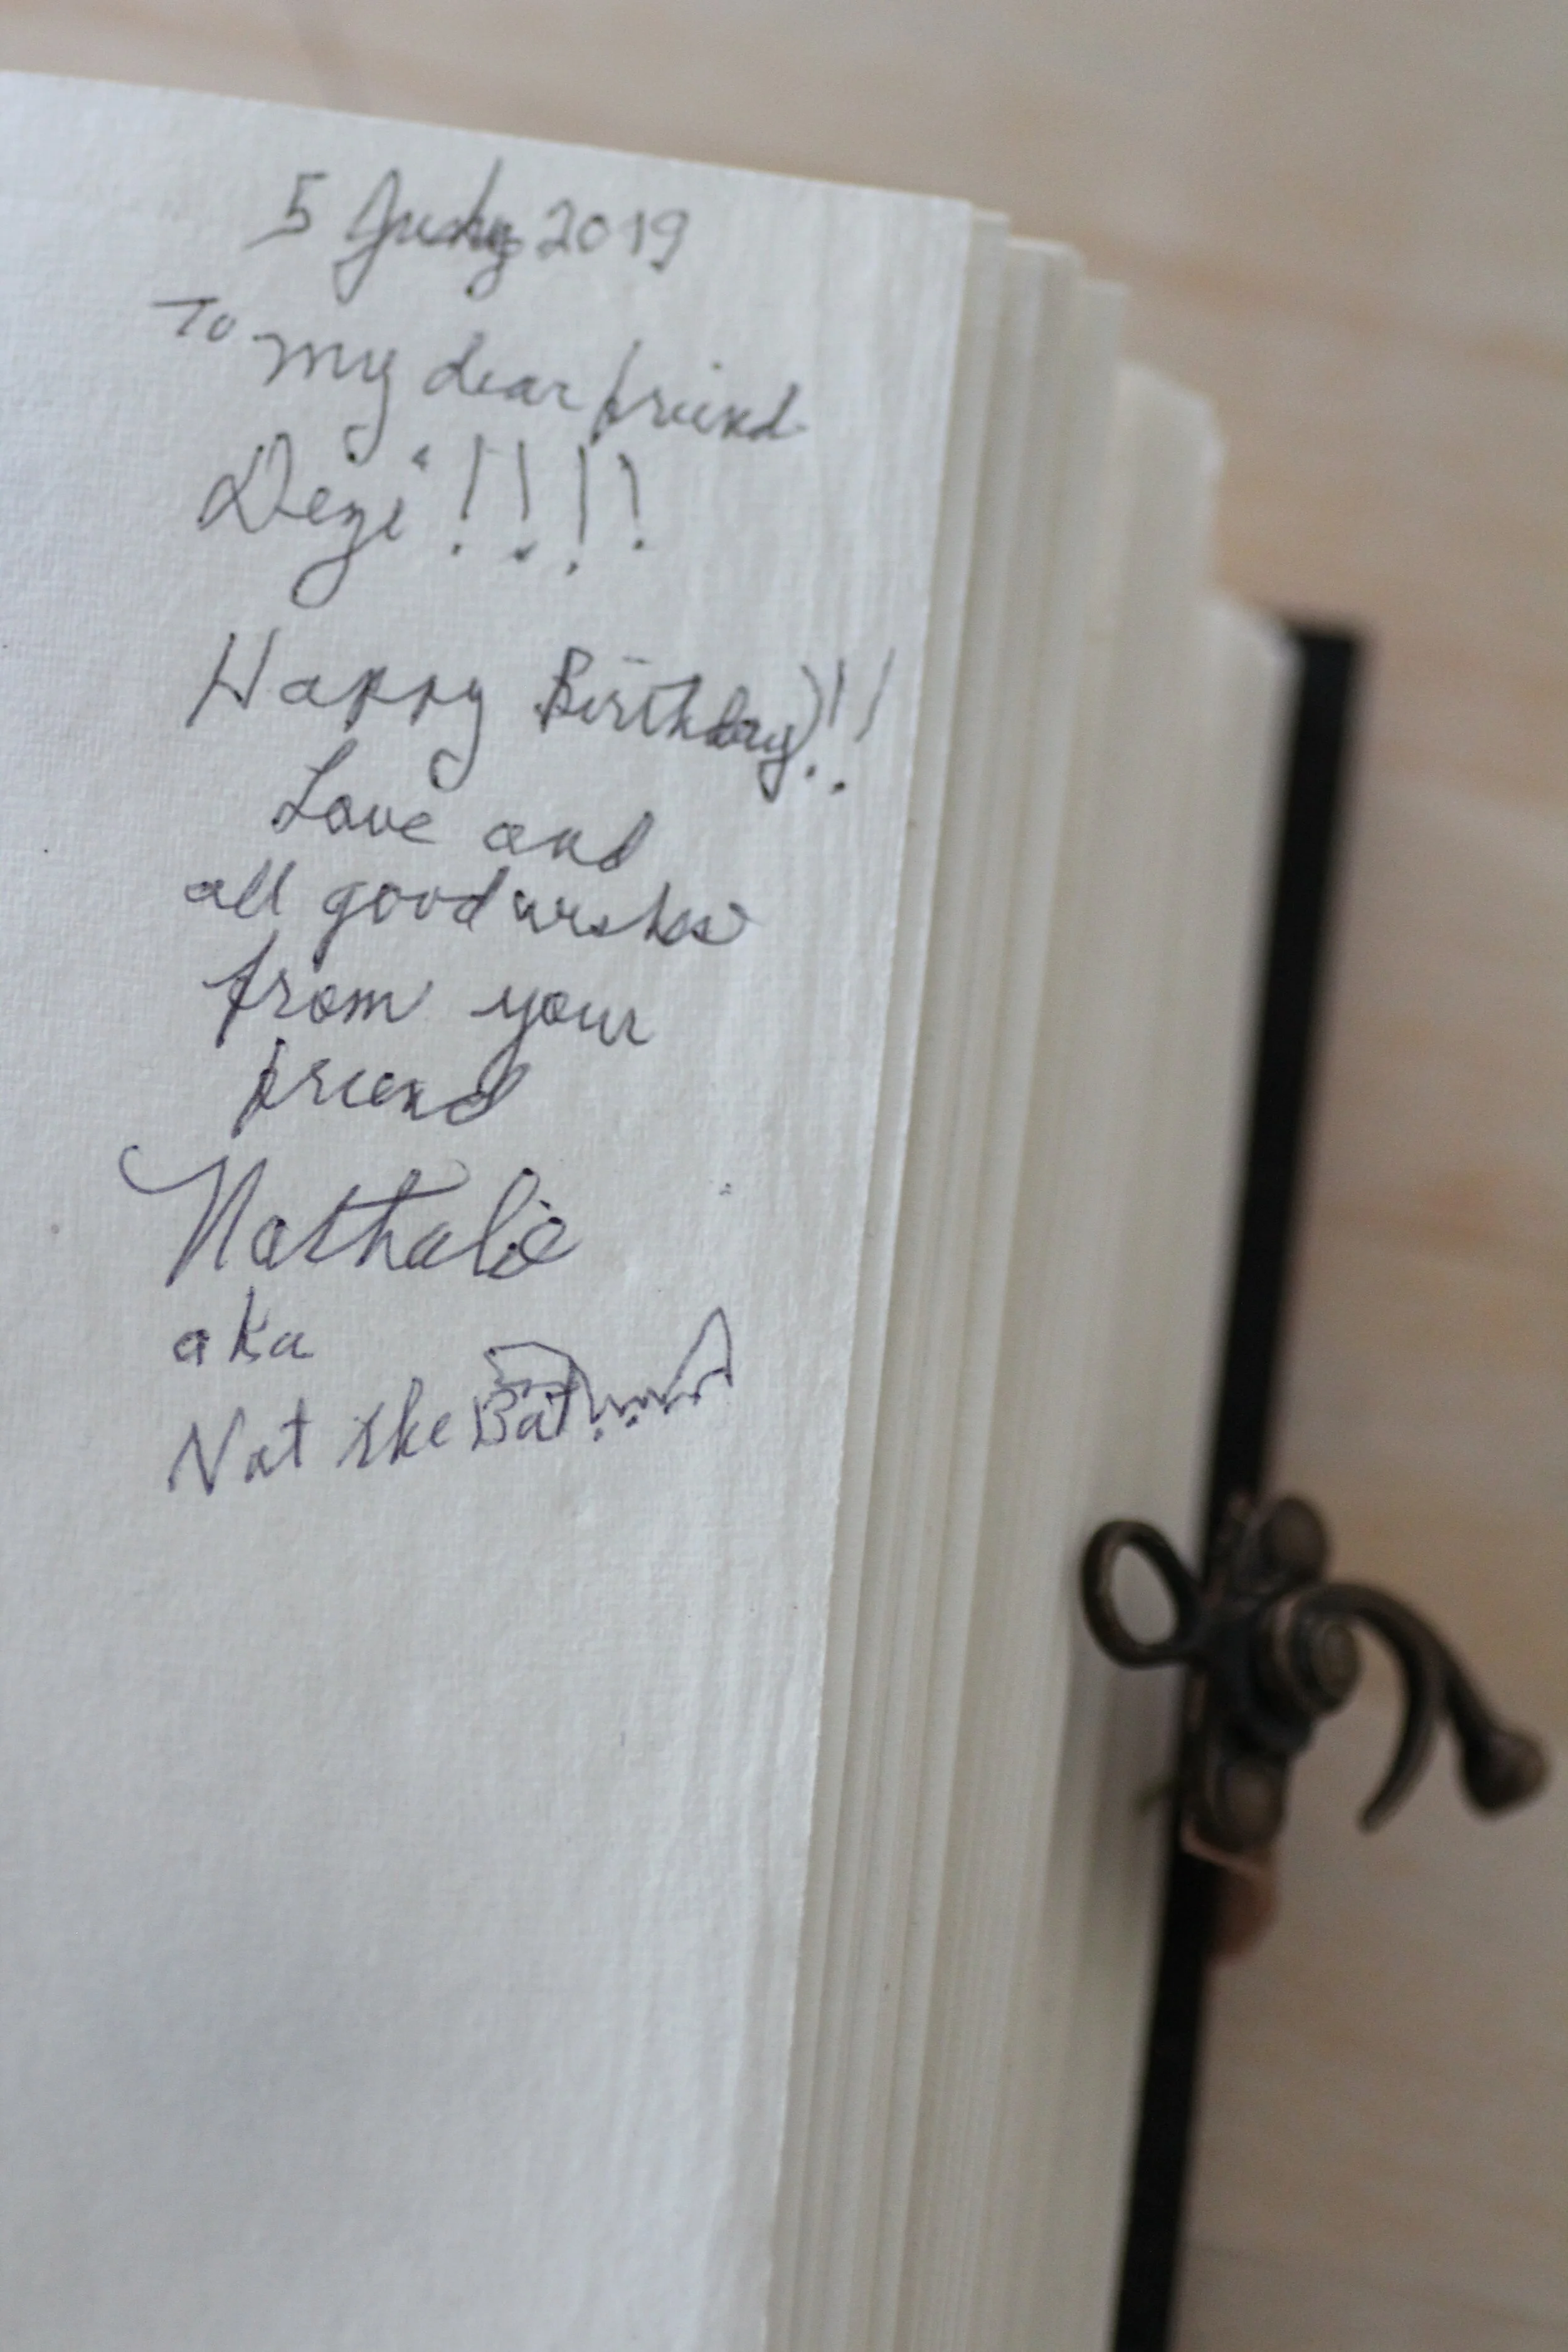 5 July 2019
To my dear friend
Dezi !!!!
Happy Birthday!!!
Love and
all good wishes
from your
friend
Nathalie
aka
Nat the Bat